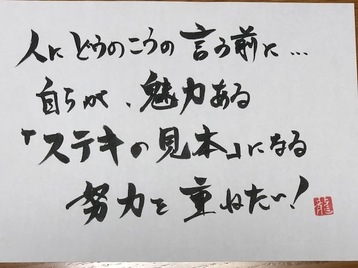 人にどうのこうの言う前に…
自らが、魅力ある
「ステキの見本」になる
努力を重ねたい!